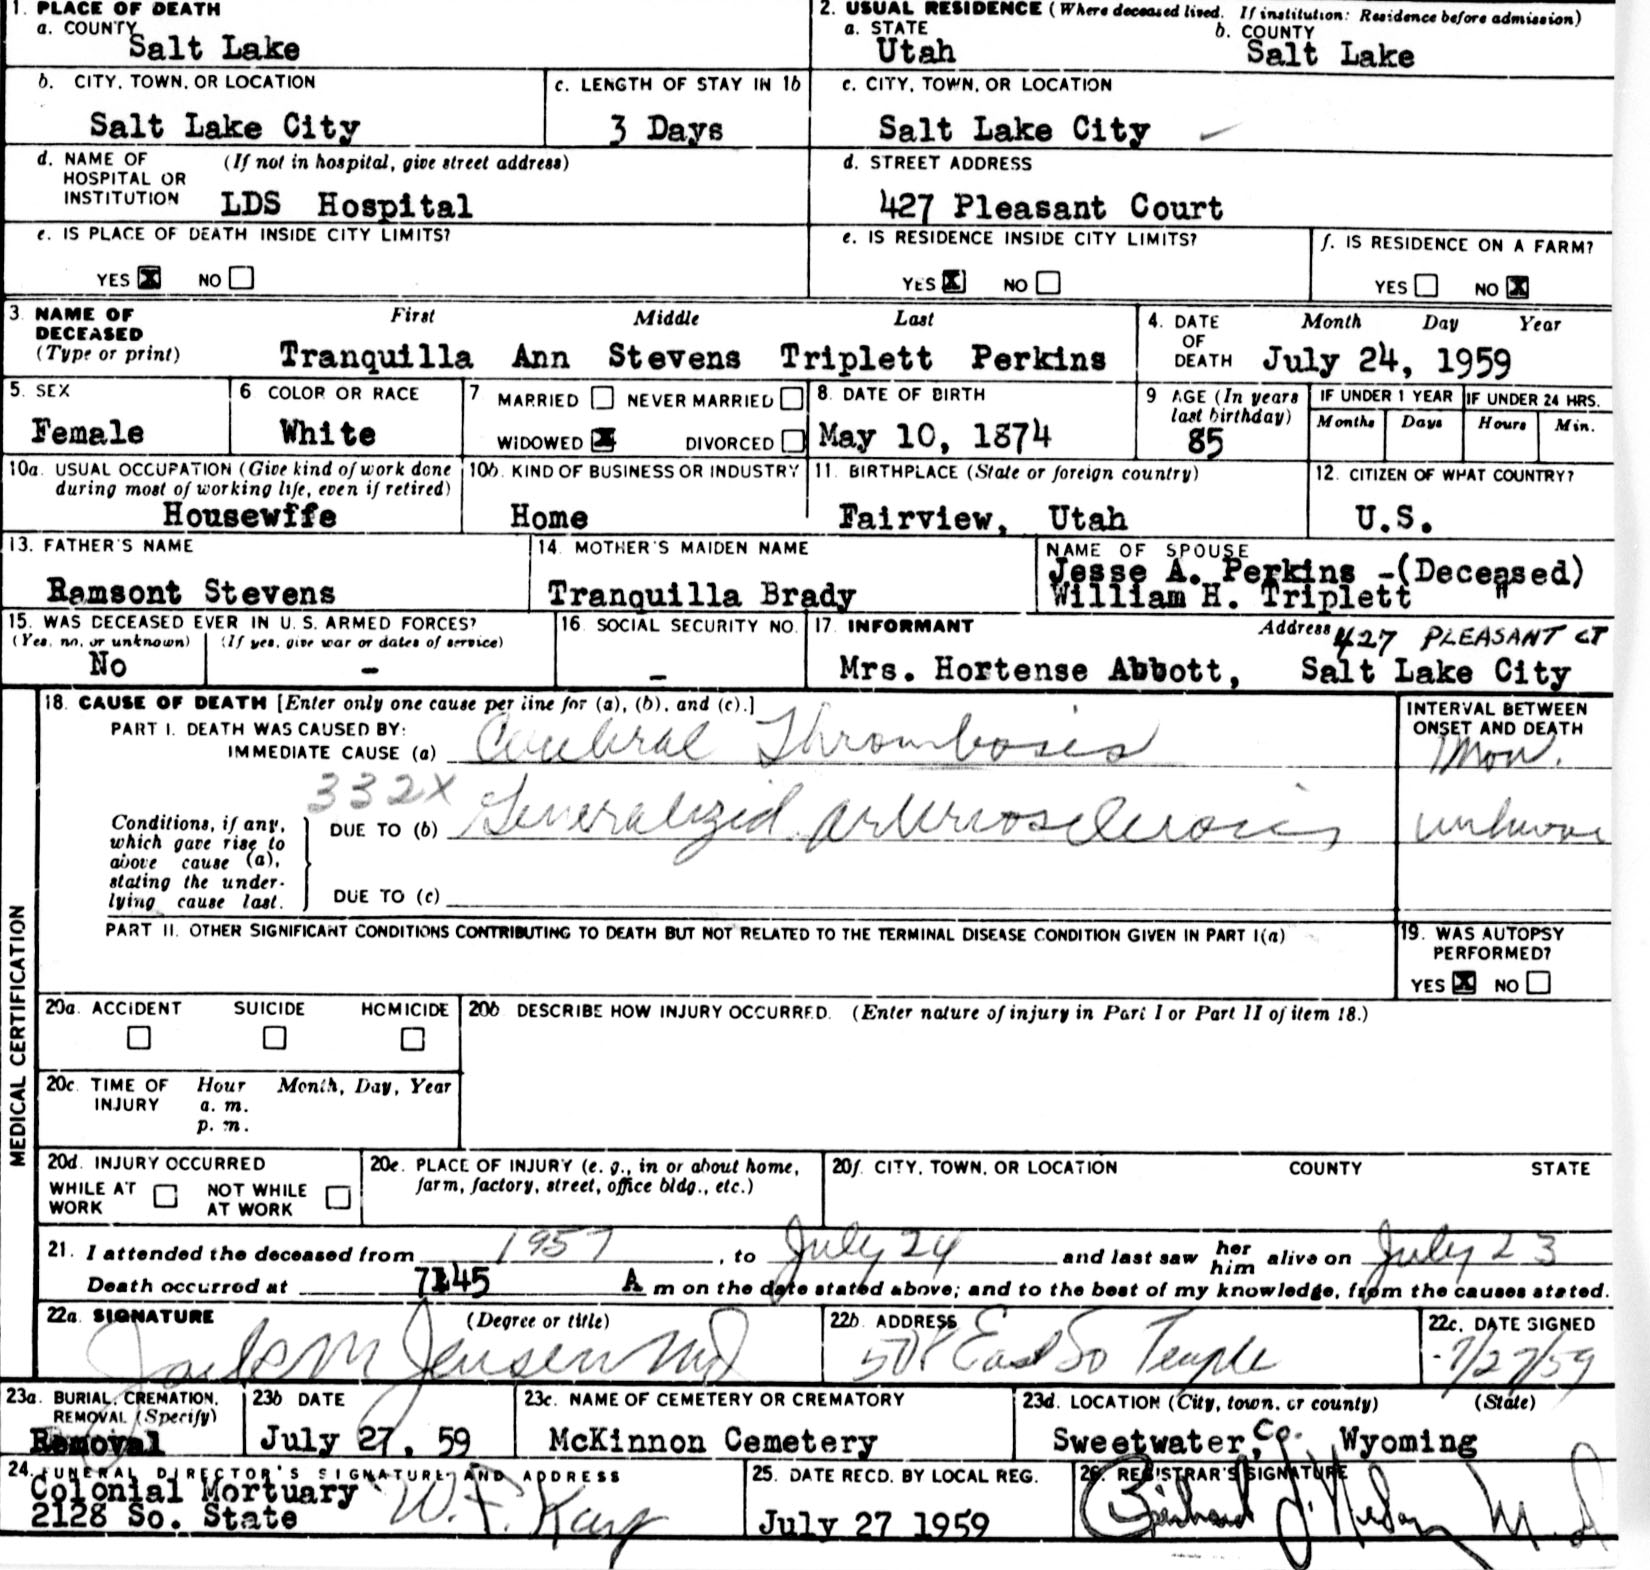 1. PLACE OF DEATH
a. COUNTY
Salt Lake
2. USUAL RESIDENCE (Where deceased lived. If institution: Residence before admission)
a. STATE
Utah
b. COUNTY
Salt Lake
b. CITY, TOWN, OR LOCATION
Salt Lake City
c. LENGTH OF STAY IN 1b
3 Days
c. CITY, TOWN, OR LOCATION
Salt Lake City
d. NAME OF HOSPITAL OR INSTITUTION (If not in hospital, give street address)
LDS Hospital
d. STREET ADDRESS
427 Pleasant Court
e. IS PLACE OF DEATH INSIDE CITY LIMITS?
YES X NO
e. IS RESIDENCE INSIDE CITY LIMITS?
YES X NO
f. IS RESIDENCE ON A FARM?
YES NO X
3. NAME OF DECEASED (Type or print)
First Middle Last
Tranquilla Ann Stevens Triplett Perkins
4. DATE OF DEATH
Month Day Year
July 24, 1959
5. SEX
Female
6 COLOR OR RACE
White
7 MARRIED NEVER MARRIED
WIDOWED X DIVORCED
8. DATE OF BIRTH
May 10, 1874
9 AGE (In years last birthday)
85
IF UNDER 1 YEAR
Months Days
IF UNDER 24 HRS.
Hours Min.
10a. USUAL OCCUPATION (Give kind of work done during most of working life, even if retired)
Housewife
10b. KIND OF BUSINESS OR INDUSTRY
Home
11. BIRTHPLACE (State or foreign country)
Fairview, Utah
12. CITIZEN OF WHAT COUNTRY?
U.S.
13. FATHER'S NAME
Ramsont Stevens
14. MOTHER'S MAIDEN NAME
Tranquilla Brady
NAME OF SPOUSE
Jesse A. Perkins -(Deceased)
William H. Triplett "
15. WAS DECEASED EVER IN U.S. ARMED FORCES?
(Yes, no, or unknown) (If yes, give war or dates of service)
No -
16. SOCIAL SECURITY NO.
-
17. INFORMANT Address 427 PLEASANT CT
Mrs. Hortense Abbott, Salt Lake City
MEDICAL CERTIFICATION
18. CAUSE OF DEATH [Enter only one cause per line for (a), (b), and (c).]
PART I. DEATH WAS CAUSED BY:
IMMEDIATE CAUSE (a) Cerebral Thrombosis
INTERVAL BETWEEN ONSET AND DEATH
332X
Conditions, if any, which gave rise to above cause (a), stating the underlying cause last.
DUE TO (b) Generalized arteriosclerosis
unknown
DUE TO (c)
PART II. OTHER SIGNIFICANT CONDITIONS CONTRIBUTING TO DEATH BUT NOT RELATED TO THE TERMINAL DISEASE CONDITION GIVEN IN PART I(a)
19. WAS AUTOPSY PERFORMED?
YES X NO
20a. ACCIDENT SUICIDE HOMICIDE
20b DESCRIBE HOW INJURY OCCURRED. (Enter nature of injury in Part I or Part II of item 18.)
20c. TIME OF INJURY Hour Month, Day, Year
a. m.
p. m.
20d. INJURY OCCURRED
WHILE AT WORK NOT WHILE AT WORK
20e. PLACE OF INJURY (e. g., in or about home, farm, factory, street, office bldg., etc.)
20f. CITY, TOWN, OR LOCATION COUNTY STATE
21. I attended the deceased from 1957, to July 24 and last saw her him alive on July 23
Death occurred at 7:45 A m on the date stated above; and to the best of my knowledge, from the causes stated.
22a. SIGNATURE (Degree or title)
Jack M Jensen MD
22b. ADDRESS
508 East So Temple
22c. DATE SIGNED
7/27/59
23a. BURIAL, CREMATION, REMOVAL (Specify)
Removal
23b DATE
July 27, 59
23c. NAME OF CEMETERY OR CREMATORY
McKinnon Cemetery
23d. LOCATION (City, town, or county) (State)
Sweetwater, Co. Wyoming
24. FUNERAL DIRECTOR'S SIGNATURE AND ADDRESS
Colonial Mortuary W. F. Kay
2128 So. State
25. DATE RECD. BY LOCAL REG.
July 27 1959
26. REGISTRAR'S SIGNATURE